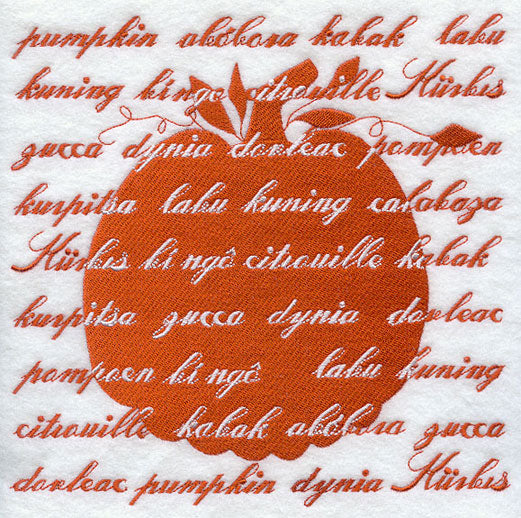 pumpkin abóbora kabak labu
kuning bí ngô citrouille Kürbis
zucca dynia dovleac pompoen
kurpitsa labu kuning calabaza
Kürbis bí ngô citrouille kabak
kurpitsa zucca dynia dovleac
pompoen bí ngô labu kuning
citrouille kabak abóbora zucca
dovleac pumpkin dynia Kürbis